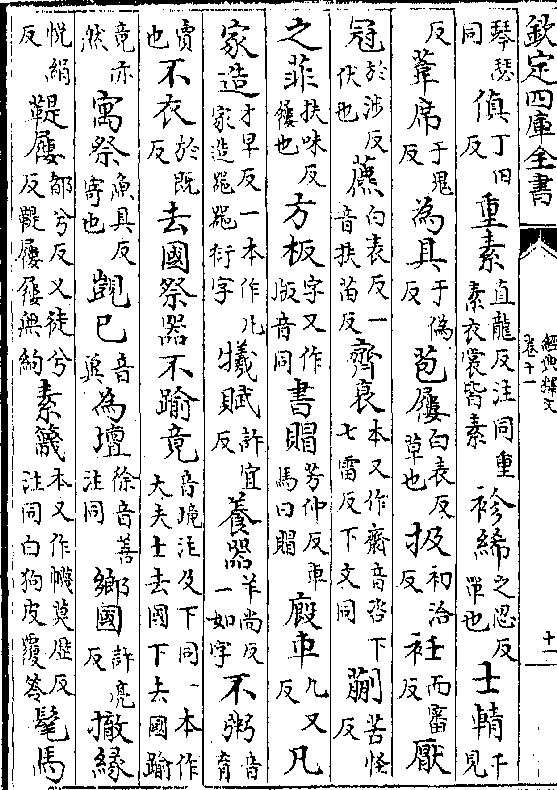 欽定四庫全書
經典釋文
卷十一
十一
琴瑟同偵丁田反重素直龍反注同重素衣裳皆素袗絺之忍反單也士輤千見
反葦席于鬼反為具于偽反苞屨白表反草也扱初洽反衽而審反厭
冠於涉反伏也藨白表反一音扶苗反齊衰本又作齋音咨下七雷反下文同蒯苦怪反
之菲扶味反屨也方板字又作版音同書賵芳仲反車馬曰賵廄車九又反凡
家造才早反一本作凡家造器器衍字犧賦許宜反養器羊尚反一如字不粥音育
賣也不衣於既反去國祭器不踰竟音境注及下同一本作大夫士去國下去國踰
竟亦然寓祭魚具反寄也覬已音冀為壇徐音善注同鄉國許亮反撤緣
悅絹反鞮屨都兮反又徒兮反鞮屨屨無絇素簚本又作幭莫歷反注同白狗皮覆笭髦馬